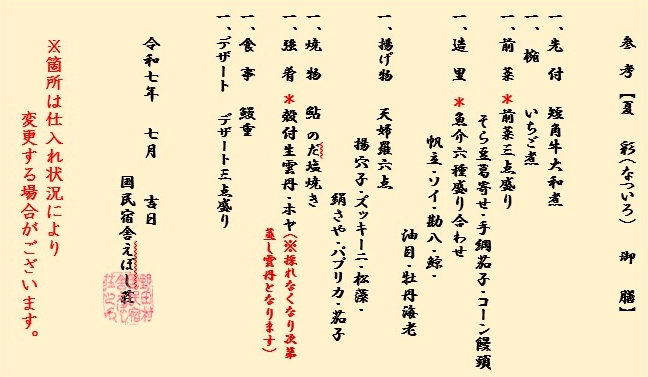 参考【夏彩(なついろ)御膳】
一、先付 短角牛大和煮
一、椀 いちご煮
一、前菜 *前菜三点盛り
そら豆葛寄せ・手綱茄子・コーン饅頭
一、造里 *魚介六種盛り合わせ
帆立・ソイ・勘八・鯨・
油目・牡丹海老
一、揚げ物 天婦羅六点
揚穴子・ズッキーニ・松藻・
絹さや・パプリカ・茄子
一、焼物 鮎のだ塩焼き
一、強肴 *殻付生雲丹・ホヤ(※採れなくなり次第
蒸し雲丹となります)
一、食事 鰻重
一、デザート デザート三点盛り
令和七年 七月 吉日
国民宿舎えぼし荘
※箇所は仕入れ状況により
変更する場合がございます。